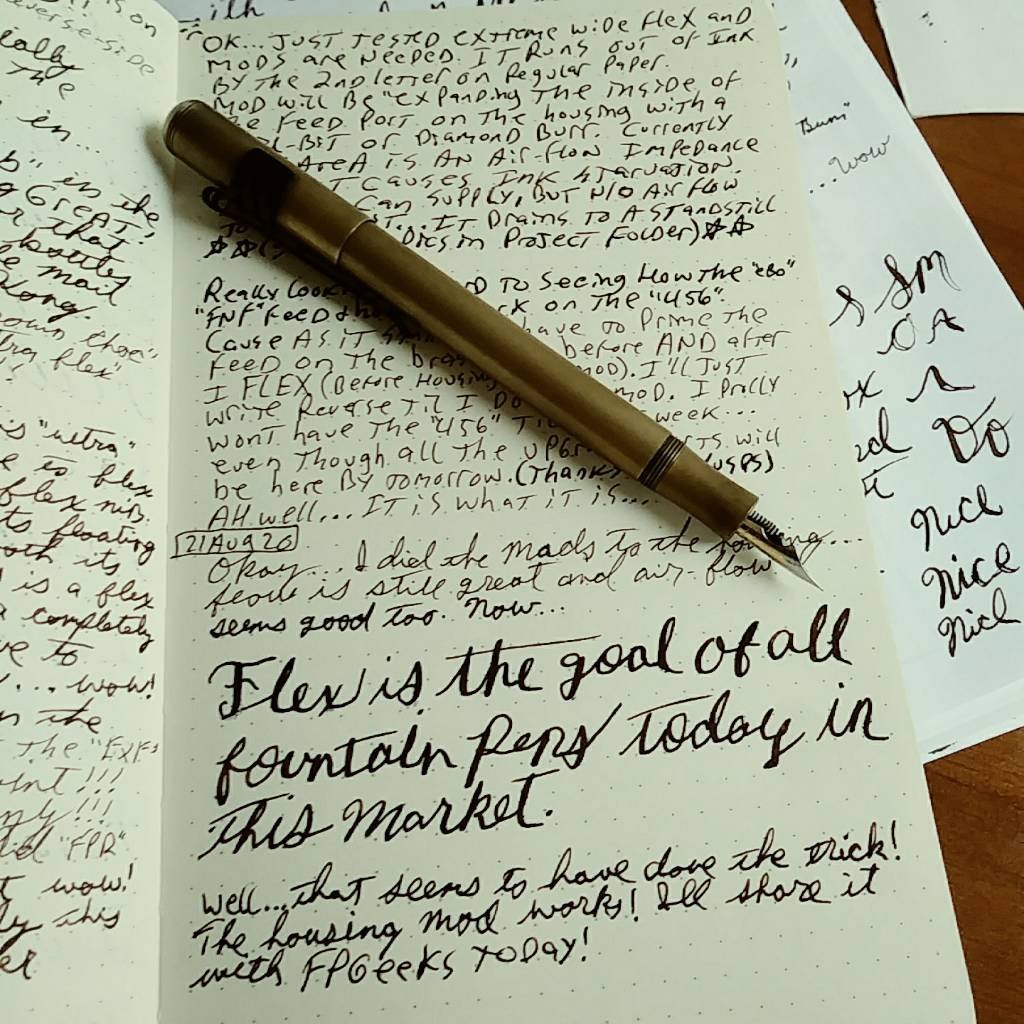 is on
reverse-side
ially
The
in...
in the
GREAT!
er that
obstiles
e mail
along.
own those"
tra flex"
is "ultra"
e is flex
flex nib.
ts floating
oth its
is a flex
completely
ve to
... wow!
n the
The "EXF
int!!!
ny!!!
id "FPR"
t wow!
ly this
er
ith
OK... Just tested extreme wide flex and
mods are needed. It runs out of ink
by the 2nd letter on regular paper.
Mod will be "expanding the inside of
the feed port on the housing with a
-bit or Diamond Burr. Currently
area is an air-flow impedance
causes ink starvation.
can supply, but w/o air flow
It drains to a standstill
Pics in Project Folder)
Really Look to seeing how the "ebo"
"FNF" feed on the "456".
Cause as it have to prime the
feed on the bra before AND after
I FLEX (Before Housing mod). I'll just
write reverse til I do mod. I prolly
wont have the "456" til week...
even though all the upgr will
be here by tomorrow. (Thanks USPS)
Ah well... It is what it is...
21AUG20
Okay... I did the mods to the housing...
flow is still great and air-flow
seems good too. Now...
Flex is the goal of all
fountain pens today in
this market.
Well... that seems to have done the trick!
The housing mod works! I'll share it
with FPGeeks today!
...wow
S Sm
OA
Do
Nice
Nice
Nice